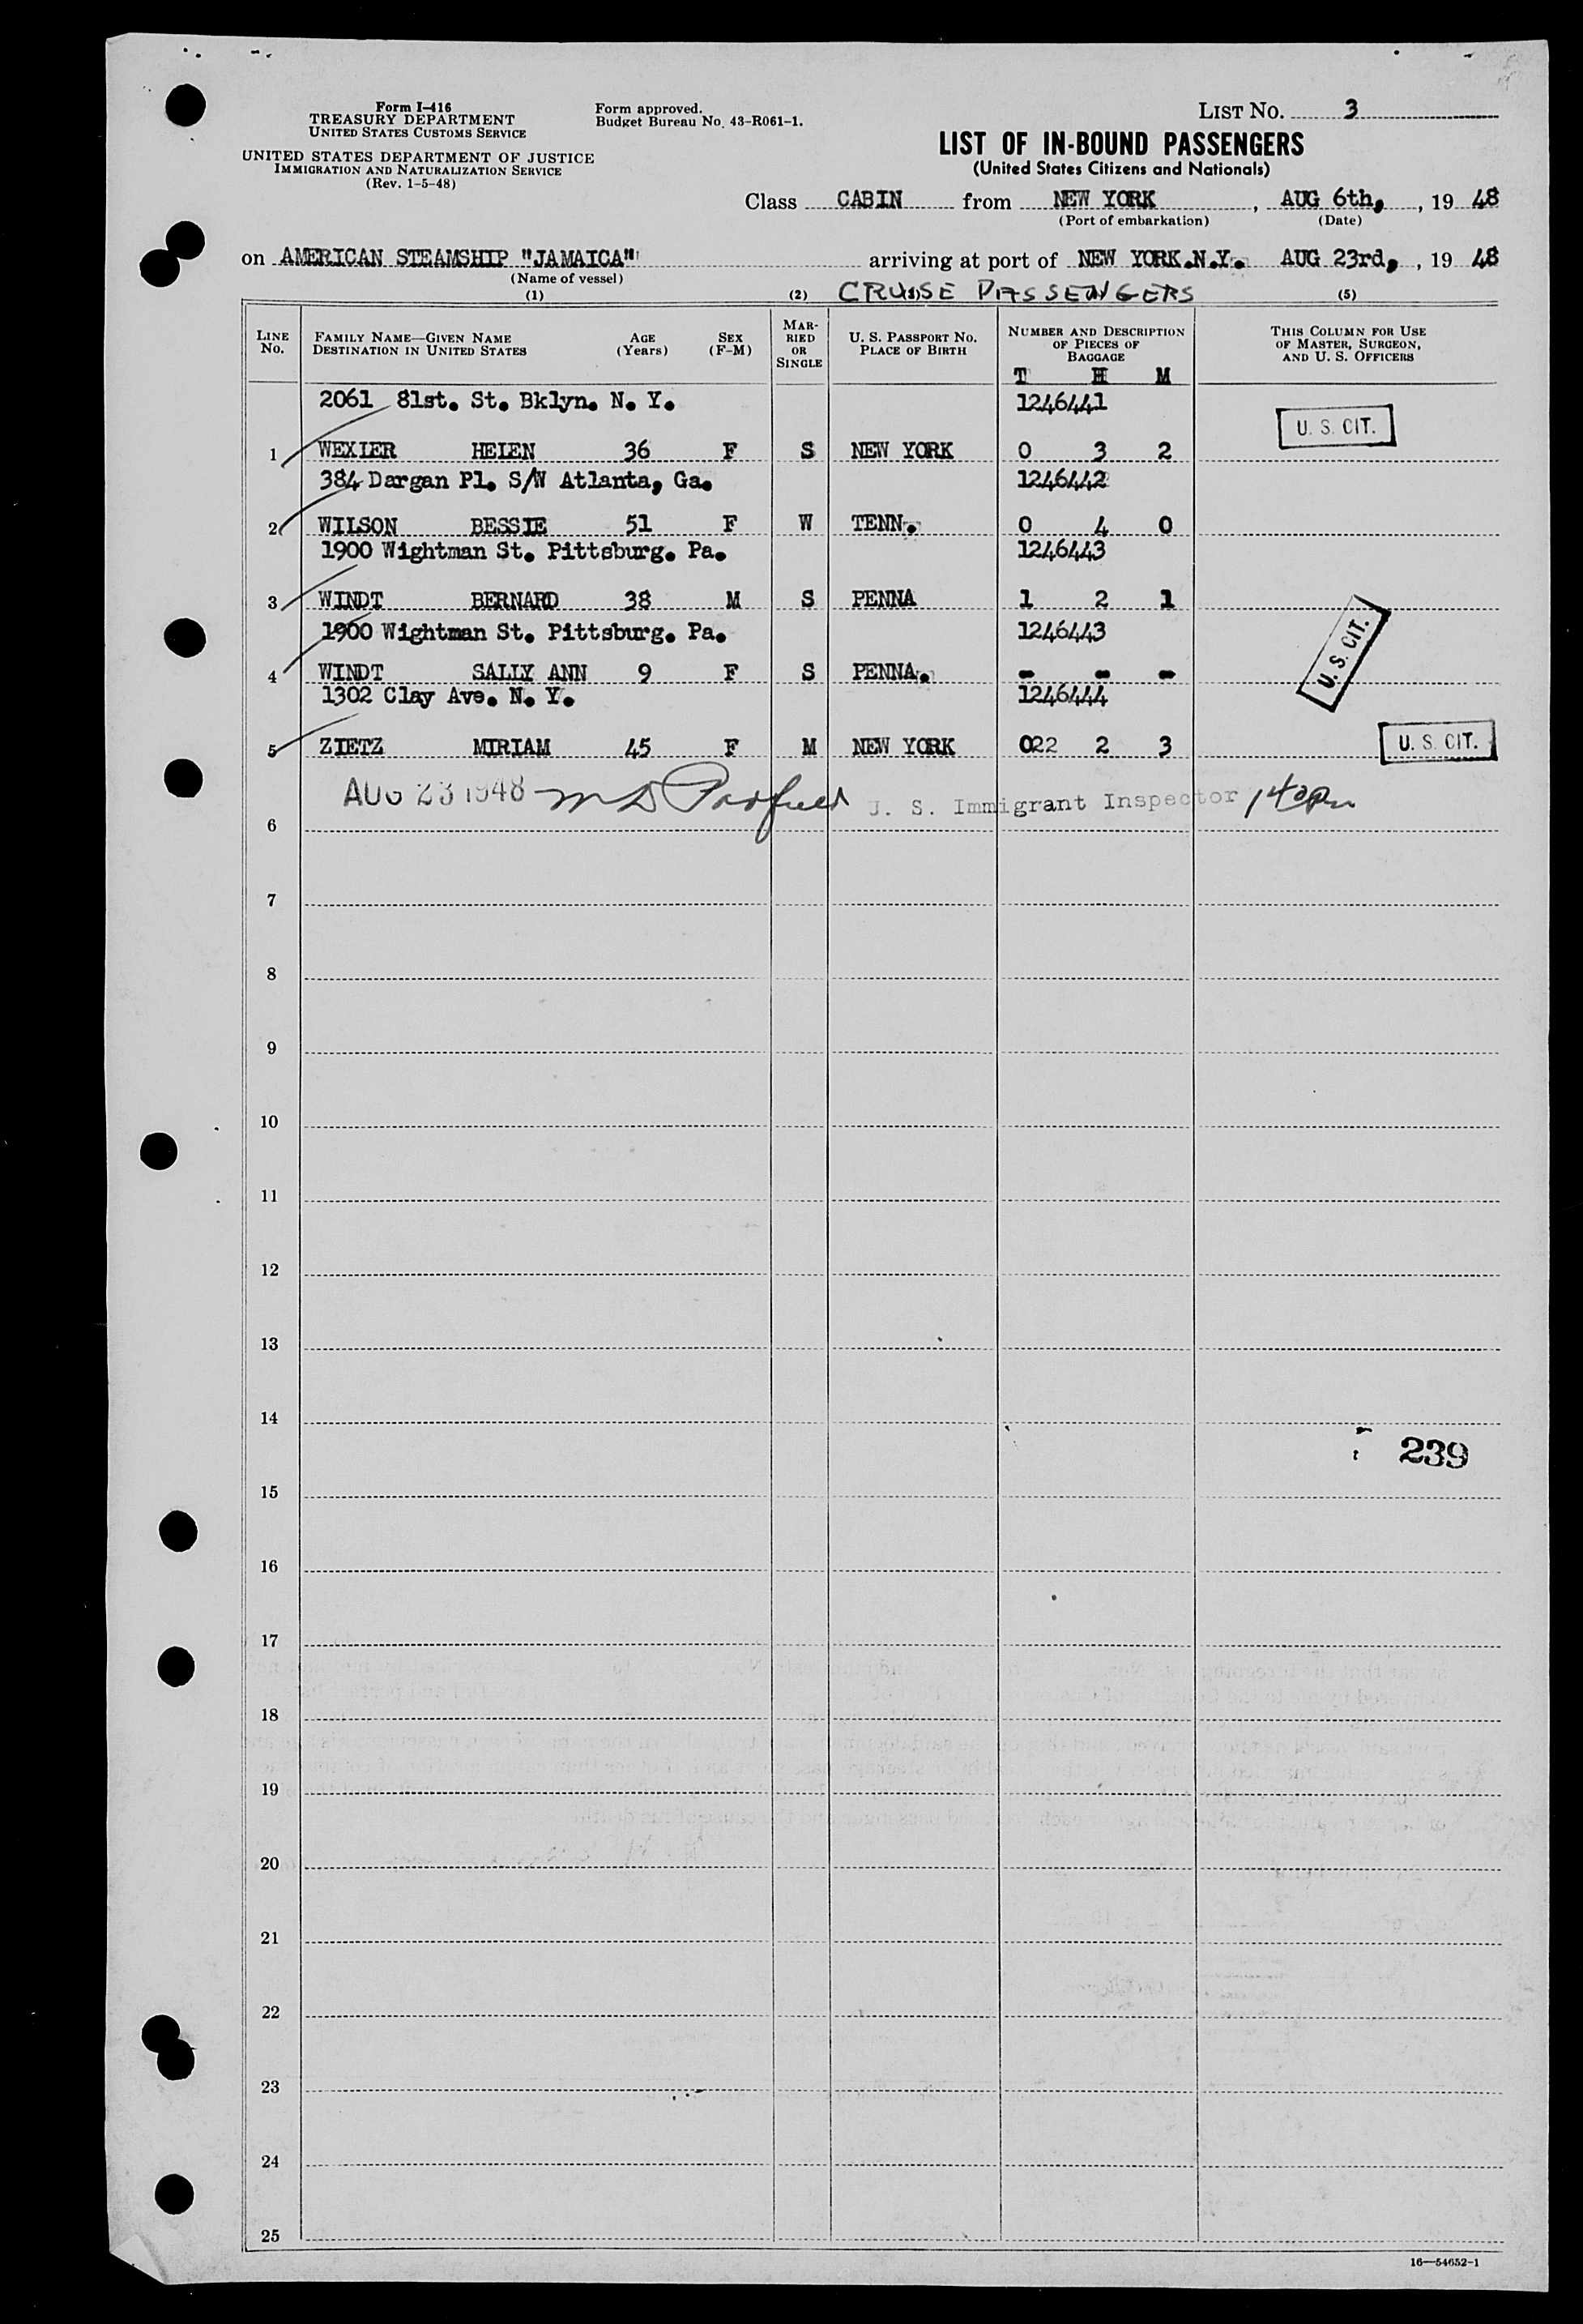 Form I-416
TREASURY DEPARTMENT
UNITED STATES CUSTOMS SERVICE
UNITED STATES DEPARTMENT OF JUSTICE
IMMIGRATION AND NATURALIZATION SERVICE
(Rev. 1-5-48)
Form approved.
Budget Bureau No. 43-R061-1.
LIST No. 3
LIST OF IN-BOUND PASSENGERS
(United States Citizens and Nationals)
Class CABIN from NEW YORK, AUG 6th, 19 48
(Port of embarkation) (Date)
on AMERICAN STEAMSHIP "JAMAICA" arriving at port of NEW YORK.N.Y. AUG 23rd, 19 48
(Name of vessel)
(1) (2) CRUISE PASSENGERS (5)
LINE No. FAMILY NAME—GIVEN NAME DESTINATION IN UNITED STATES AGE (Years) SEX (F-M) MARRIED OR SINGLE U. S. PASSPORT NO. PLACE OF BIRTH NUMBER AND DESCRIPTION OF PIECES OF BAGGAGE THIS COLUMN FOR USE OF MASTER, SURGEON, AND U. S. OFFICERS
T H M
2061 81st. St. Bklyn. N. Y. 1246441
U. S. CIT.
1 WEXLER HELEN 36 F S NEW YORK 0 3 2
384 Dargan Pl. S/W Atlanta, Ga. 1246442
2 WILSON BESSIE 51 F W TENN. 0 4 0
1900 Wightman St. Pittsburg. Pa. 1246443
3 WINDT BERNARD 38 M S PENNA 1 2 1
1900 Wightman St. Pittsburg. Pa. 1246443
U. S. CIT.
4 WINDT SALLY ANN 9 F S PENNA. - - -
1302 Clay Ave. N. Y. 1246444
5 ZIETZ MIRIAM 45 F M NEW YORK 022 2 3 U. S. CIT.
AUG 23 1948 U. S. Immigrant Inspector
6
7
8
9
10
11
12
13
14
239
15
16
17
18
19
20
21
22
23
24
25
16—54652-1